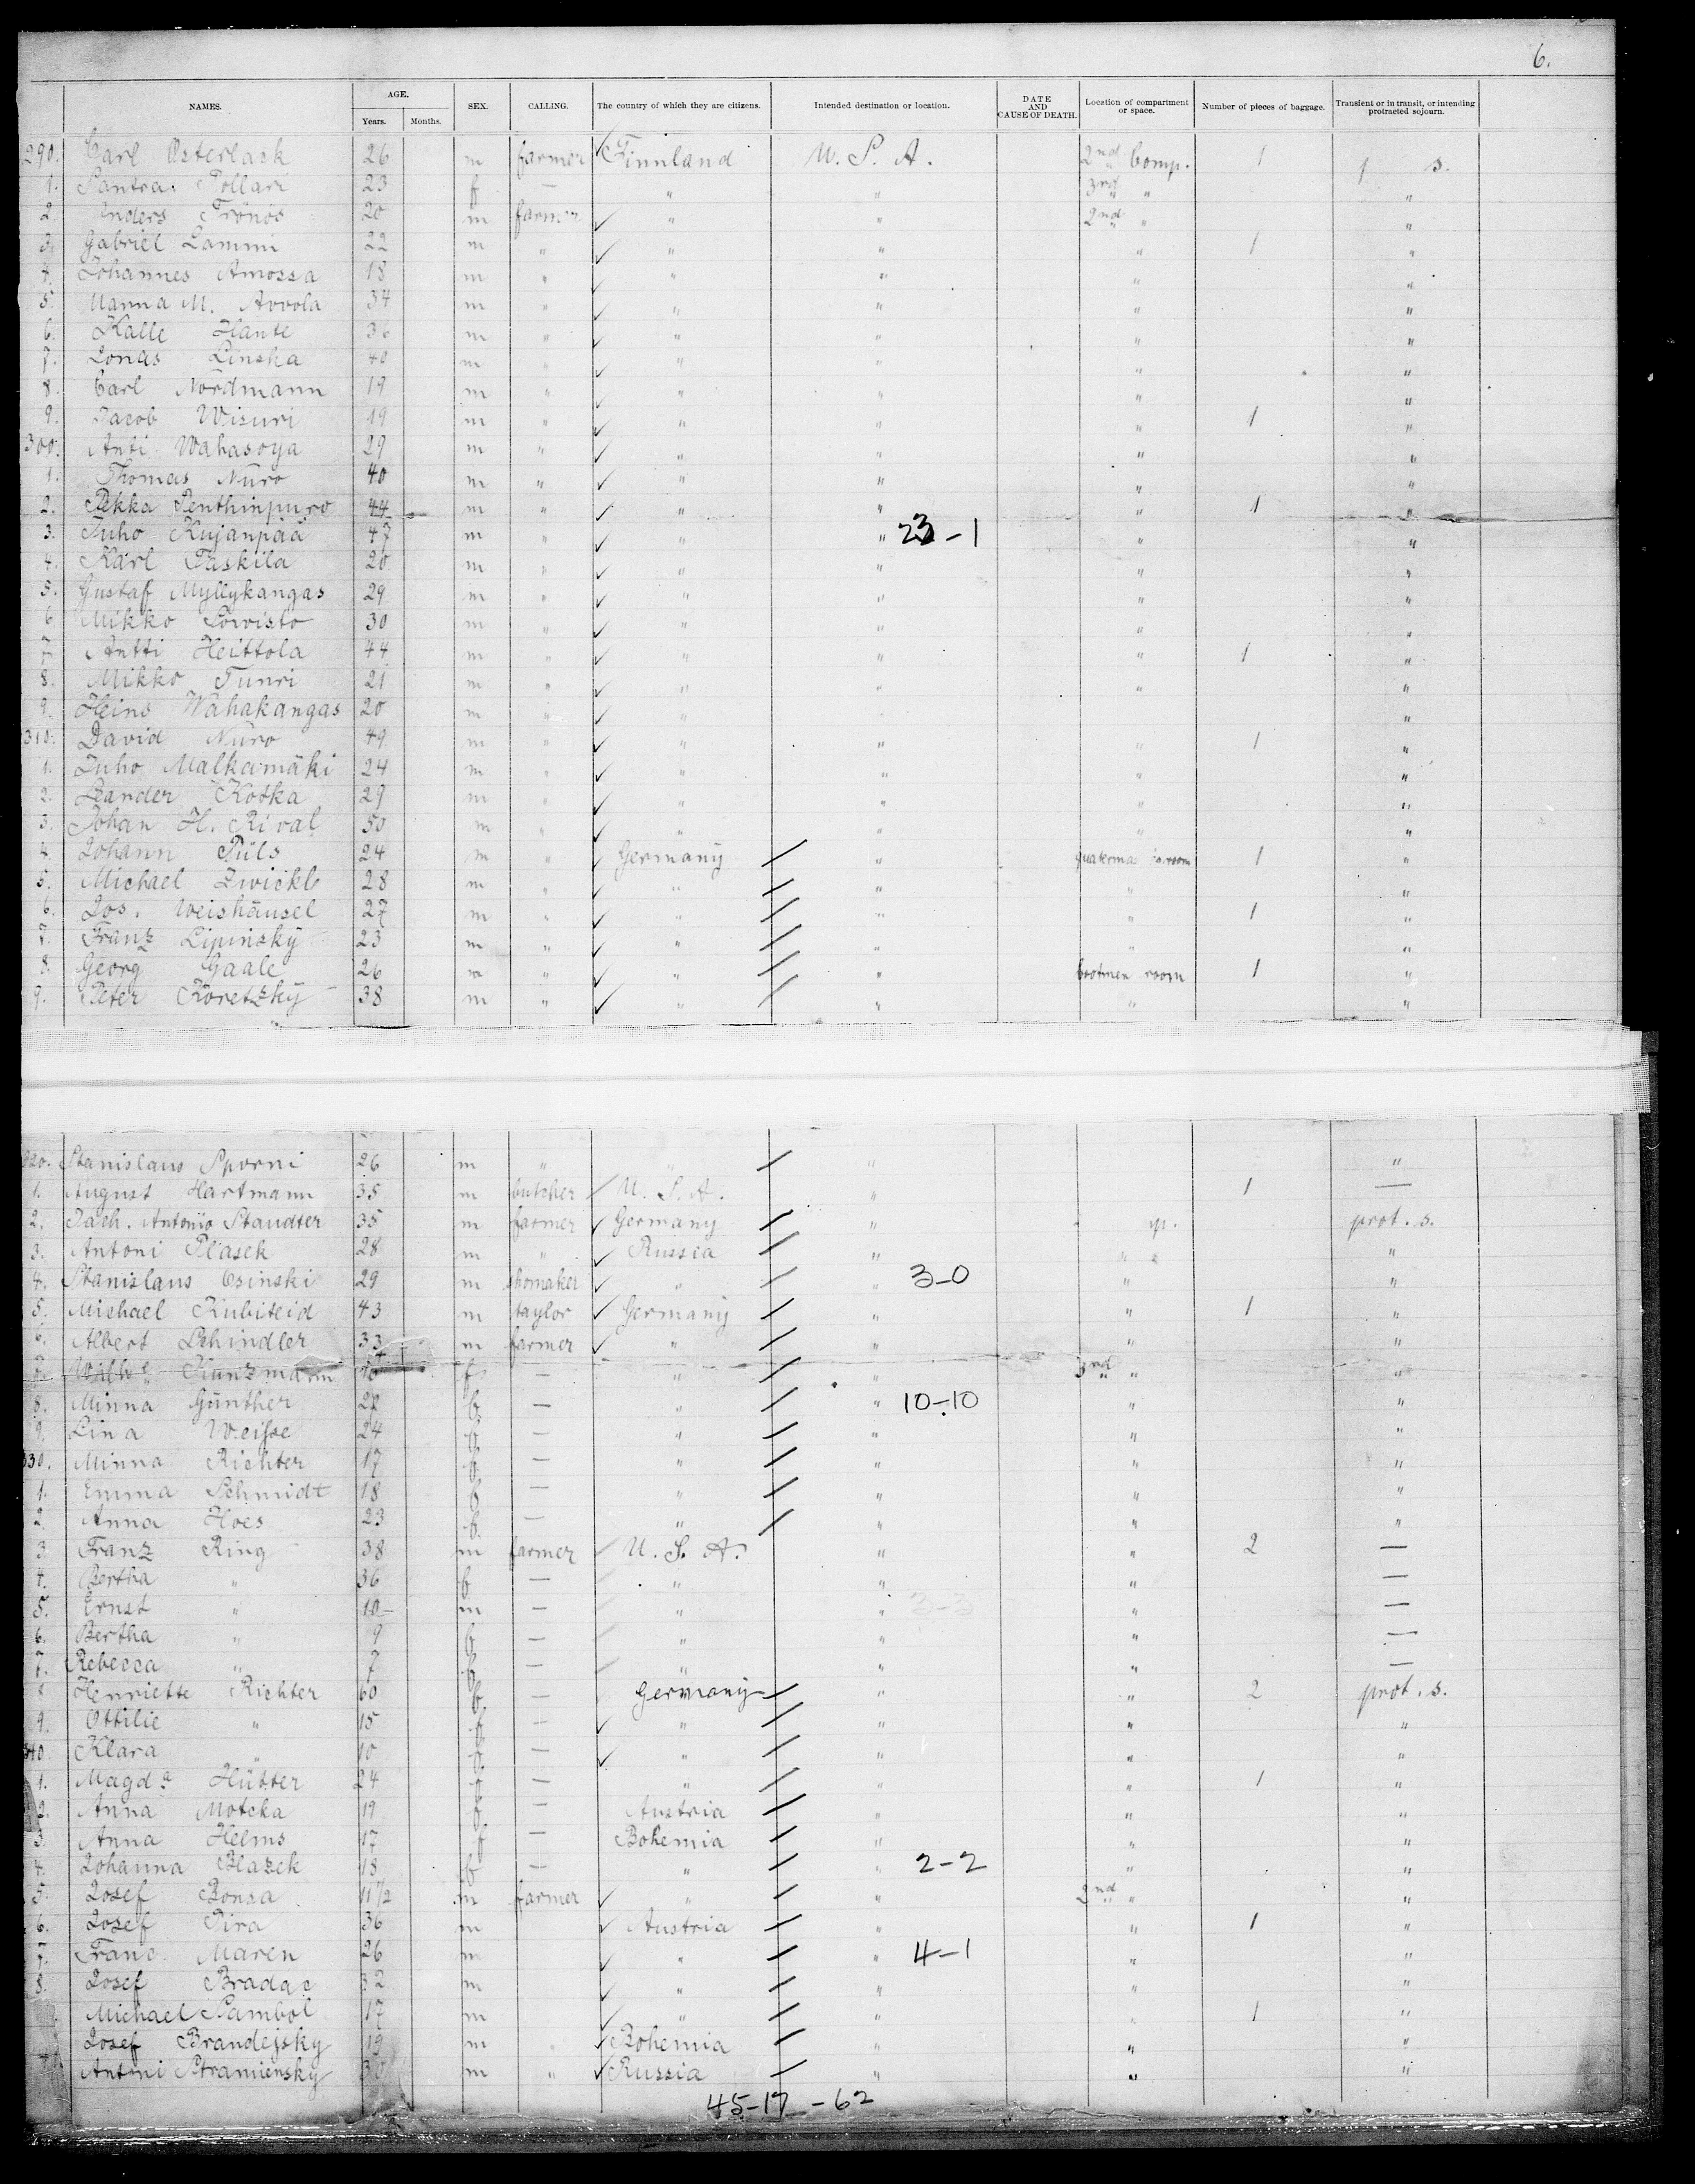 6.
NAMES. AGE. Years. Months. SEX. CALLING. The country of which they are citizens. Intended destination or location. DATE AND CAUSE OF DEATH. Location of compartment or space. Number of pieces of baggage. Transient or in transit, or intending protracted sojourn.
290. Carl Osterlask 26 m farmer Finnland U. S. A. 2nd Comp. 1 p s.
1. Santra Pollari 23 f — " " 3rd " "
2. Anders Fronös 20 m farmer " " 2nd " "
3. Gabriel Lammi 22 m " " " " 1 "
4. Johannes Amossa 18 m " " " " "
5. Manna M. Avvola 34 m " " " " "
6. Kalle Hante 36 m " " " " "
7. Jonas Linska 40 m " " " " "
8. Carl Nordmann 19 m " " " " "
9. Jacob Wisuri 19 m " " " " 1 "
300. Anti Wahasoya 29 m " " " " "
1. Thomas Nuro 40 m " " " " "
2. Pekka Penthinpuro 44 m " " " " 1 "
3. Juho Kujanpää 47 m " " " 23-1 " "
4. Karl Paskila 20 m " " " " "
5. Gustaf Myllykangas 29 m " " " " "
6 Mikko Sowisto 30 m " " " " "
7 Antti Heittola 44 m " " " " 1 "
8. Mikko Tunri 21 m " " " " "
9. Heino Wahakangas 20 m " " "
310. David Nuro 49 m " " " " 1 "
1. Juho Malkamäki 24 m " " " " "
2. Leander Kotka 29 m " " " " "
3. Johan H. Rival 50 m " " " " "
4. Johann Püls 24 m " Germany " room 1 "
5. Michael Zwickl 28 m " " " " "
6. Jos. Weishäusel 27 m " " " " 1 "
7. Franz Lipinsky 23 m " " " " "
8. Georg Gaale 26 m " " " bootmen room 1 "
9. Peter Koretzky 38 m " " " " "
320. Stanislaus Sporni 26 m " " " "
1. August Hartmann 35 m butcher U. S. A. " 1 —
2. Zach. Antonio Staudter 35 m farmer Germany " prot. s.
3. Antoni Plasek 28 m " Russia " " " "
4. Stanislaus Osinski 29 m shomaker " " 3-0 " "
5. Michael Kubiteid 43 m taylor Germany " " 1 "
6. Albert Schindler 33 m farmer " " " "
7. Kunzmann f — " " 3rd " "
8. Minna Günther 22 f — " " 10-10 " "
9. Lina Weisse 24 f — " " " "
330. Minna Richter 17 f — " " " "
1. Emma Schmidt 18 f — " " " "
2. Anna Hoes 23 f — " " " "
3. Franz Ring 38 m farmer U. S. A. " " 2 —
4. Bertha " 36 f — " " " —
5. Ernst " 10 m — " " 3-3 " —
6. Bertha " 9 f — " " " —
7. Rebecca " 7 f — " " " —
Henriette Richter 60 f — Germany " " 2 prot. s.
9. Ottilie " 15 f — " " " "
340. Klara " 10 f — " " " "
1. Magda Hütter 24 f — " " " 1 "
2. Anna Motcka 19 f — Austria " " "
3. Anna Helms 17 f — Bohemia " " "
4. Johanna Blazek 18 f — " " 2-2 " "
5. Josef Bonsa 11 1/2 m farmer " " 2nd " "
6. Josef Pira 36 m Austria " " 1 "
7. Franc. Maren 26 m " " 4-1 " "
8. Josef Bradac 32 m " " " "
Michael Sambol 17 m " " " 1 "
Josef Brandejsky 19 m " Bohemia " " "
Antoni Stramiensky 30 m " Russia " " "
45-17-62